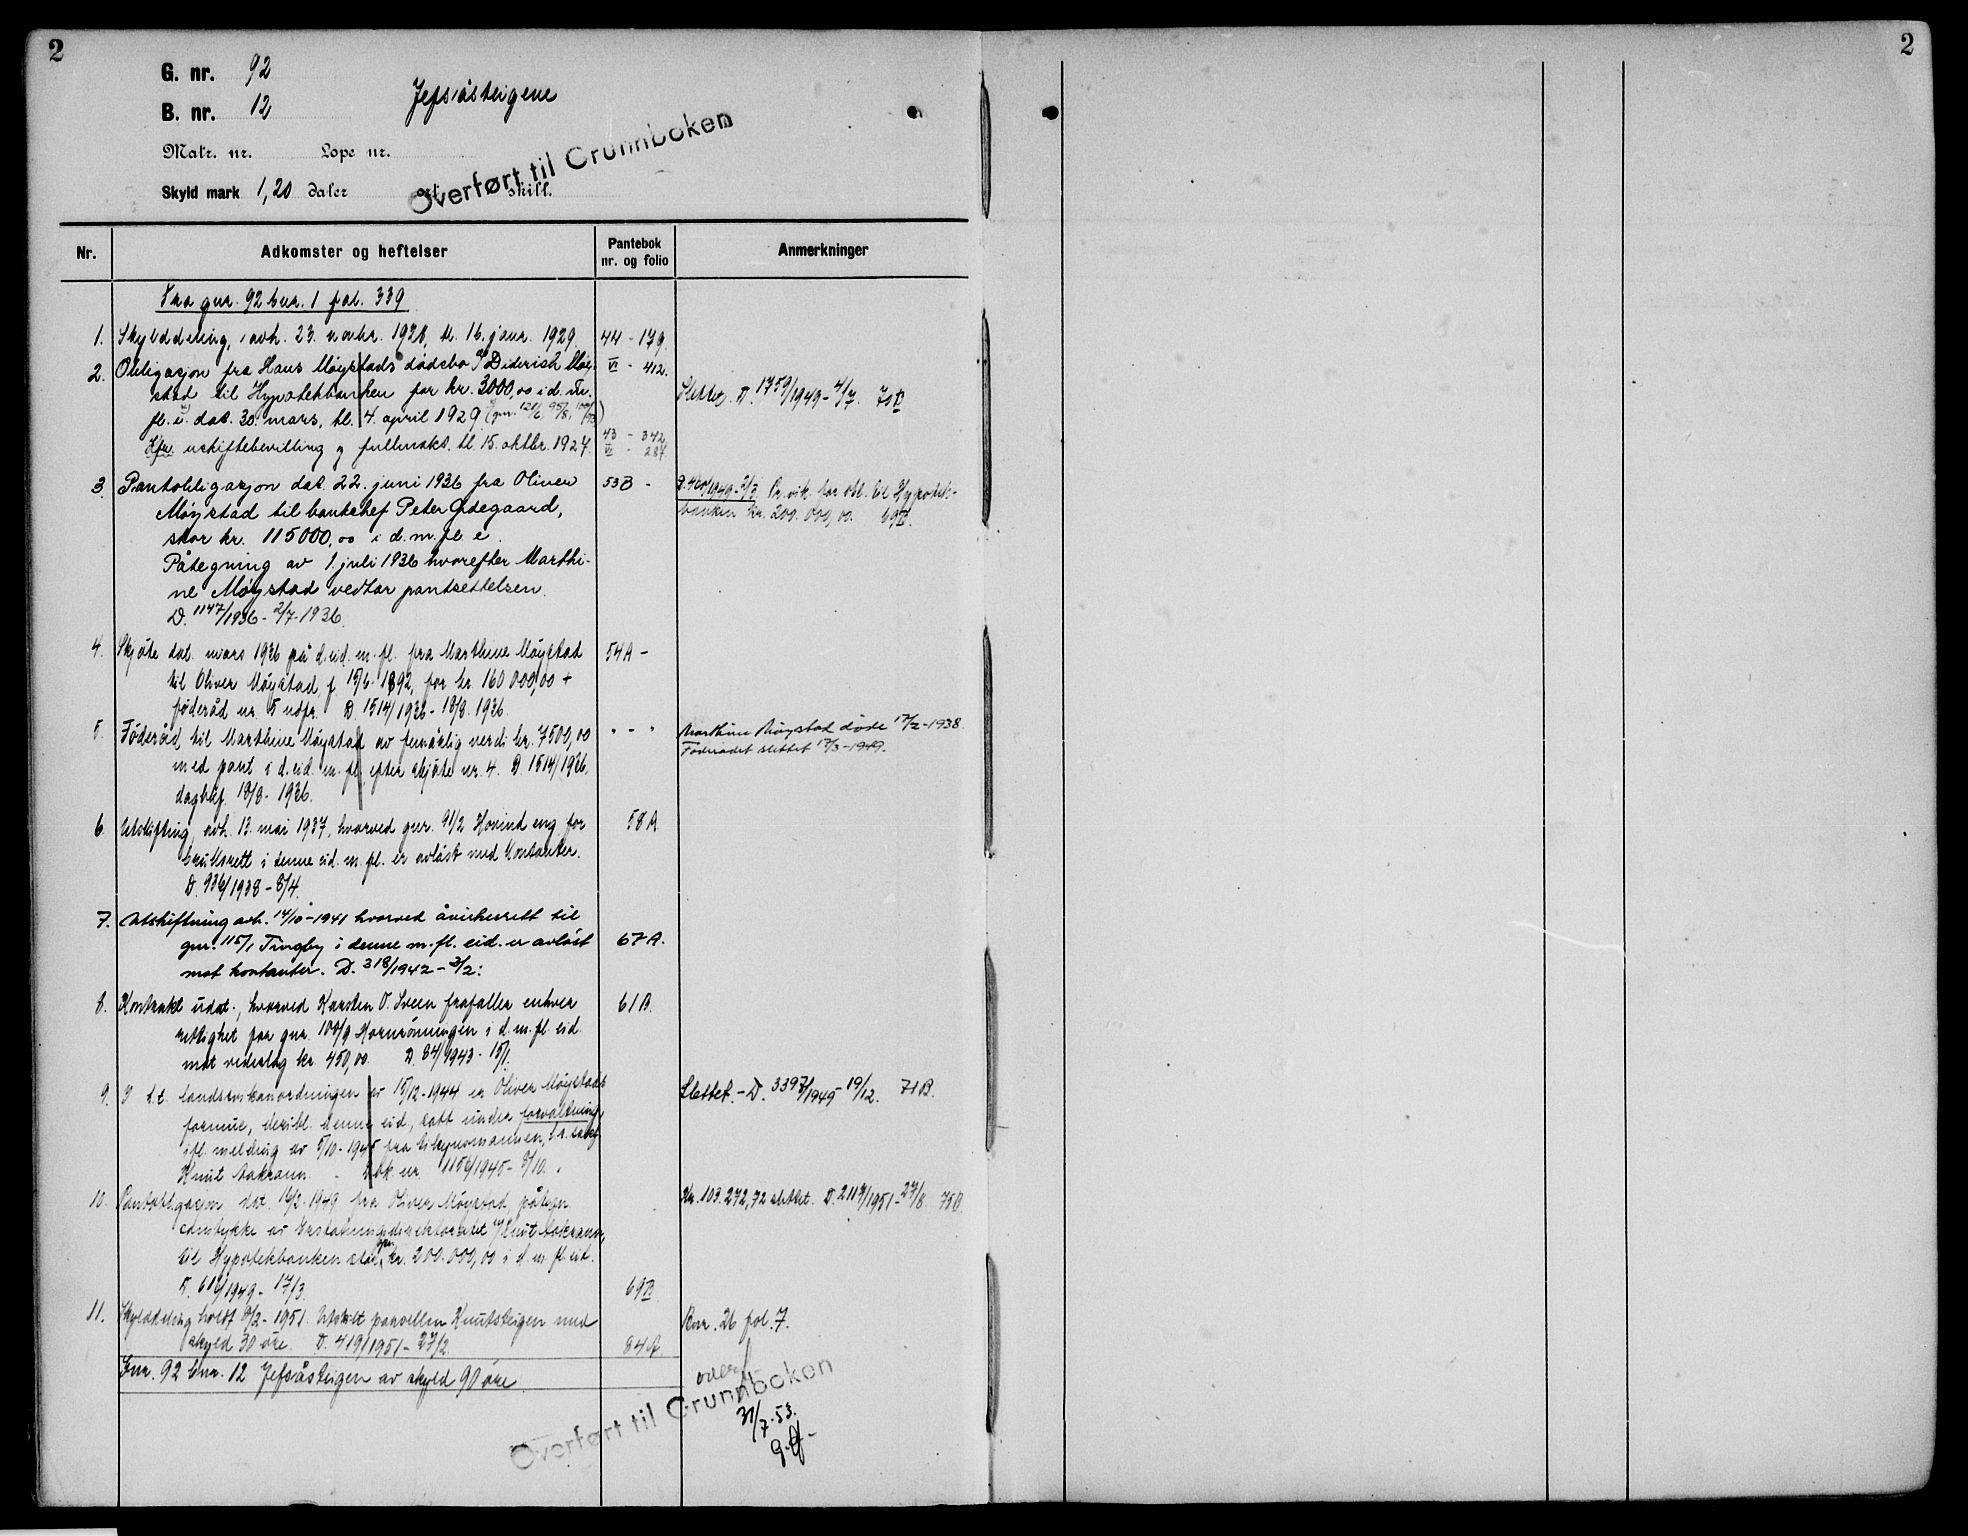 2
2
G. nr. 92
B. nr. 12
Jefsåsteigene
Matr. nr. Løpe nr.
Skyld mark 1,20 daler ort skill.
Overført til Grunnboken
Nr. Adkomster og heftelser Pantebok nr. og folio Anmerkninger
Fra gnr. 92 bnr. 1 fol. 339
1. Skylddeling, avh. 23. novbr. 1928, tl. 16. janr. 1929. 44 - 179.
2. Obligasjon fra Hans Møystads dødsbo og Diderich Møy- VI - 412.
stad til Hypotekbanken for kr. 3000,00 i d. m. Slettet. D. 1759/1949 - 4/7. 70B
fl. e. dat. 30. mars, tl. 4. april 1929
Kfr. uskiftebevilling og fullmakt. tl 15. oktbr. 1927. 43 - 342, VI - 287.
3. Pantobligasjon dat. 22. juni 1936 fra Oliver 53B - Pr. vik. for obl. til Hypotek-
Møystad til banksjef Peter Ødegaard, banken kr. 200.000,00. 69B.
stor kr. 115000,00 i d. m. fl. e.
Påtegning av 1. juli 1936 hvorefter Marthi-
ne Møystad vedtar pantsettelsen.
D. 1147/1936 - 2/7-1936.
4. Skjøte dat. mars 1936 på d. eid. m. fl. fra Marthine Møystad 54A -
til Oliver Møystad, f. 15/6-1892, for kr. 160 000,00 +
føderåd nr. 5 nedfr. D. 1514/1936 - 18/8. 1936.
5. Føderåd til Marthine Møystad av femårlig verdi kr. 7500,00 " - " Marthine Møystad døde 17/2-1938.
med pant i d. eid. m. fl. efter skjøte nr. 4. D. 1514/1936, Føderådet slettet 17/3-1949.
dagbkf. 18/8-1936.
6. Utskifting, avh. 13. mai 1937, hvorved gnr. 91/2 Hovind eng for 58A
bruksrett i denne eid. m. fl. er avløst med kontanter.
D. 936/1938 - 8/4.
7. Utskiftning avh. 14/10-1941 hvorved åvirkesrett til
gnr. 115/1 Tingby i denne m. fl. eid. er avløst 67A.
mot kontanter. D. 318/1942 - 3/2.
8. Kontrakt udat., hvorved Karsten O. Sveen frafaller enhver 61B.
rettighet for gnr. 100/9 Hornrønningen i d. m. fl. eid.
mot vederlag kr. 450,00. D. 84/1943 - 15/1.
9. I h. t. landssvikanordningen av 15/12-1944 er Oliver Møystads Slettet. - D. 3397/1949 - 19/12. 71B.
formue, deribl. denne eid, satt under forvaltning
ifl. melding av 5/10-1945 fra
Knut Aakrann. - Dok. nr. 1156/1945 - 8/10.
10. Pantobligasjon dat. 16/2-1949 fra Oliver Møystad, påtegn. Kr. 103.272,72 slettet. D. 2117/1951 - 27/8. 75B
samtykke av Erstatningsdirektoratet v/ Knut Aakrann,
til Hypotekbanken stor kr. 200.000,00 i d. m. fl. eid.
D. 616/1949 - 17/3. 69B
11. Skylddeling holdt 8/2-1951. Utskilt parsellen Knutsteigen med Bnr. 26 fol. 7.
skyld 30 øre. D. 419/1951 - 27/2. 84A.
Gnr. 92 bnr. 12 Jefsåsteigen av skyld 90 øre.
overf
Overført til Grunnboken
31/7.53.